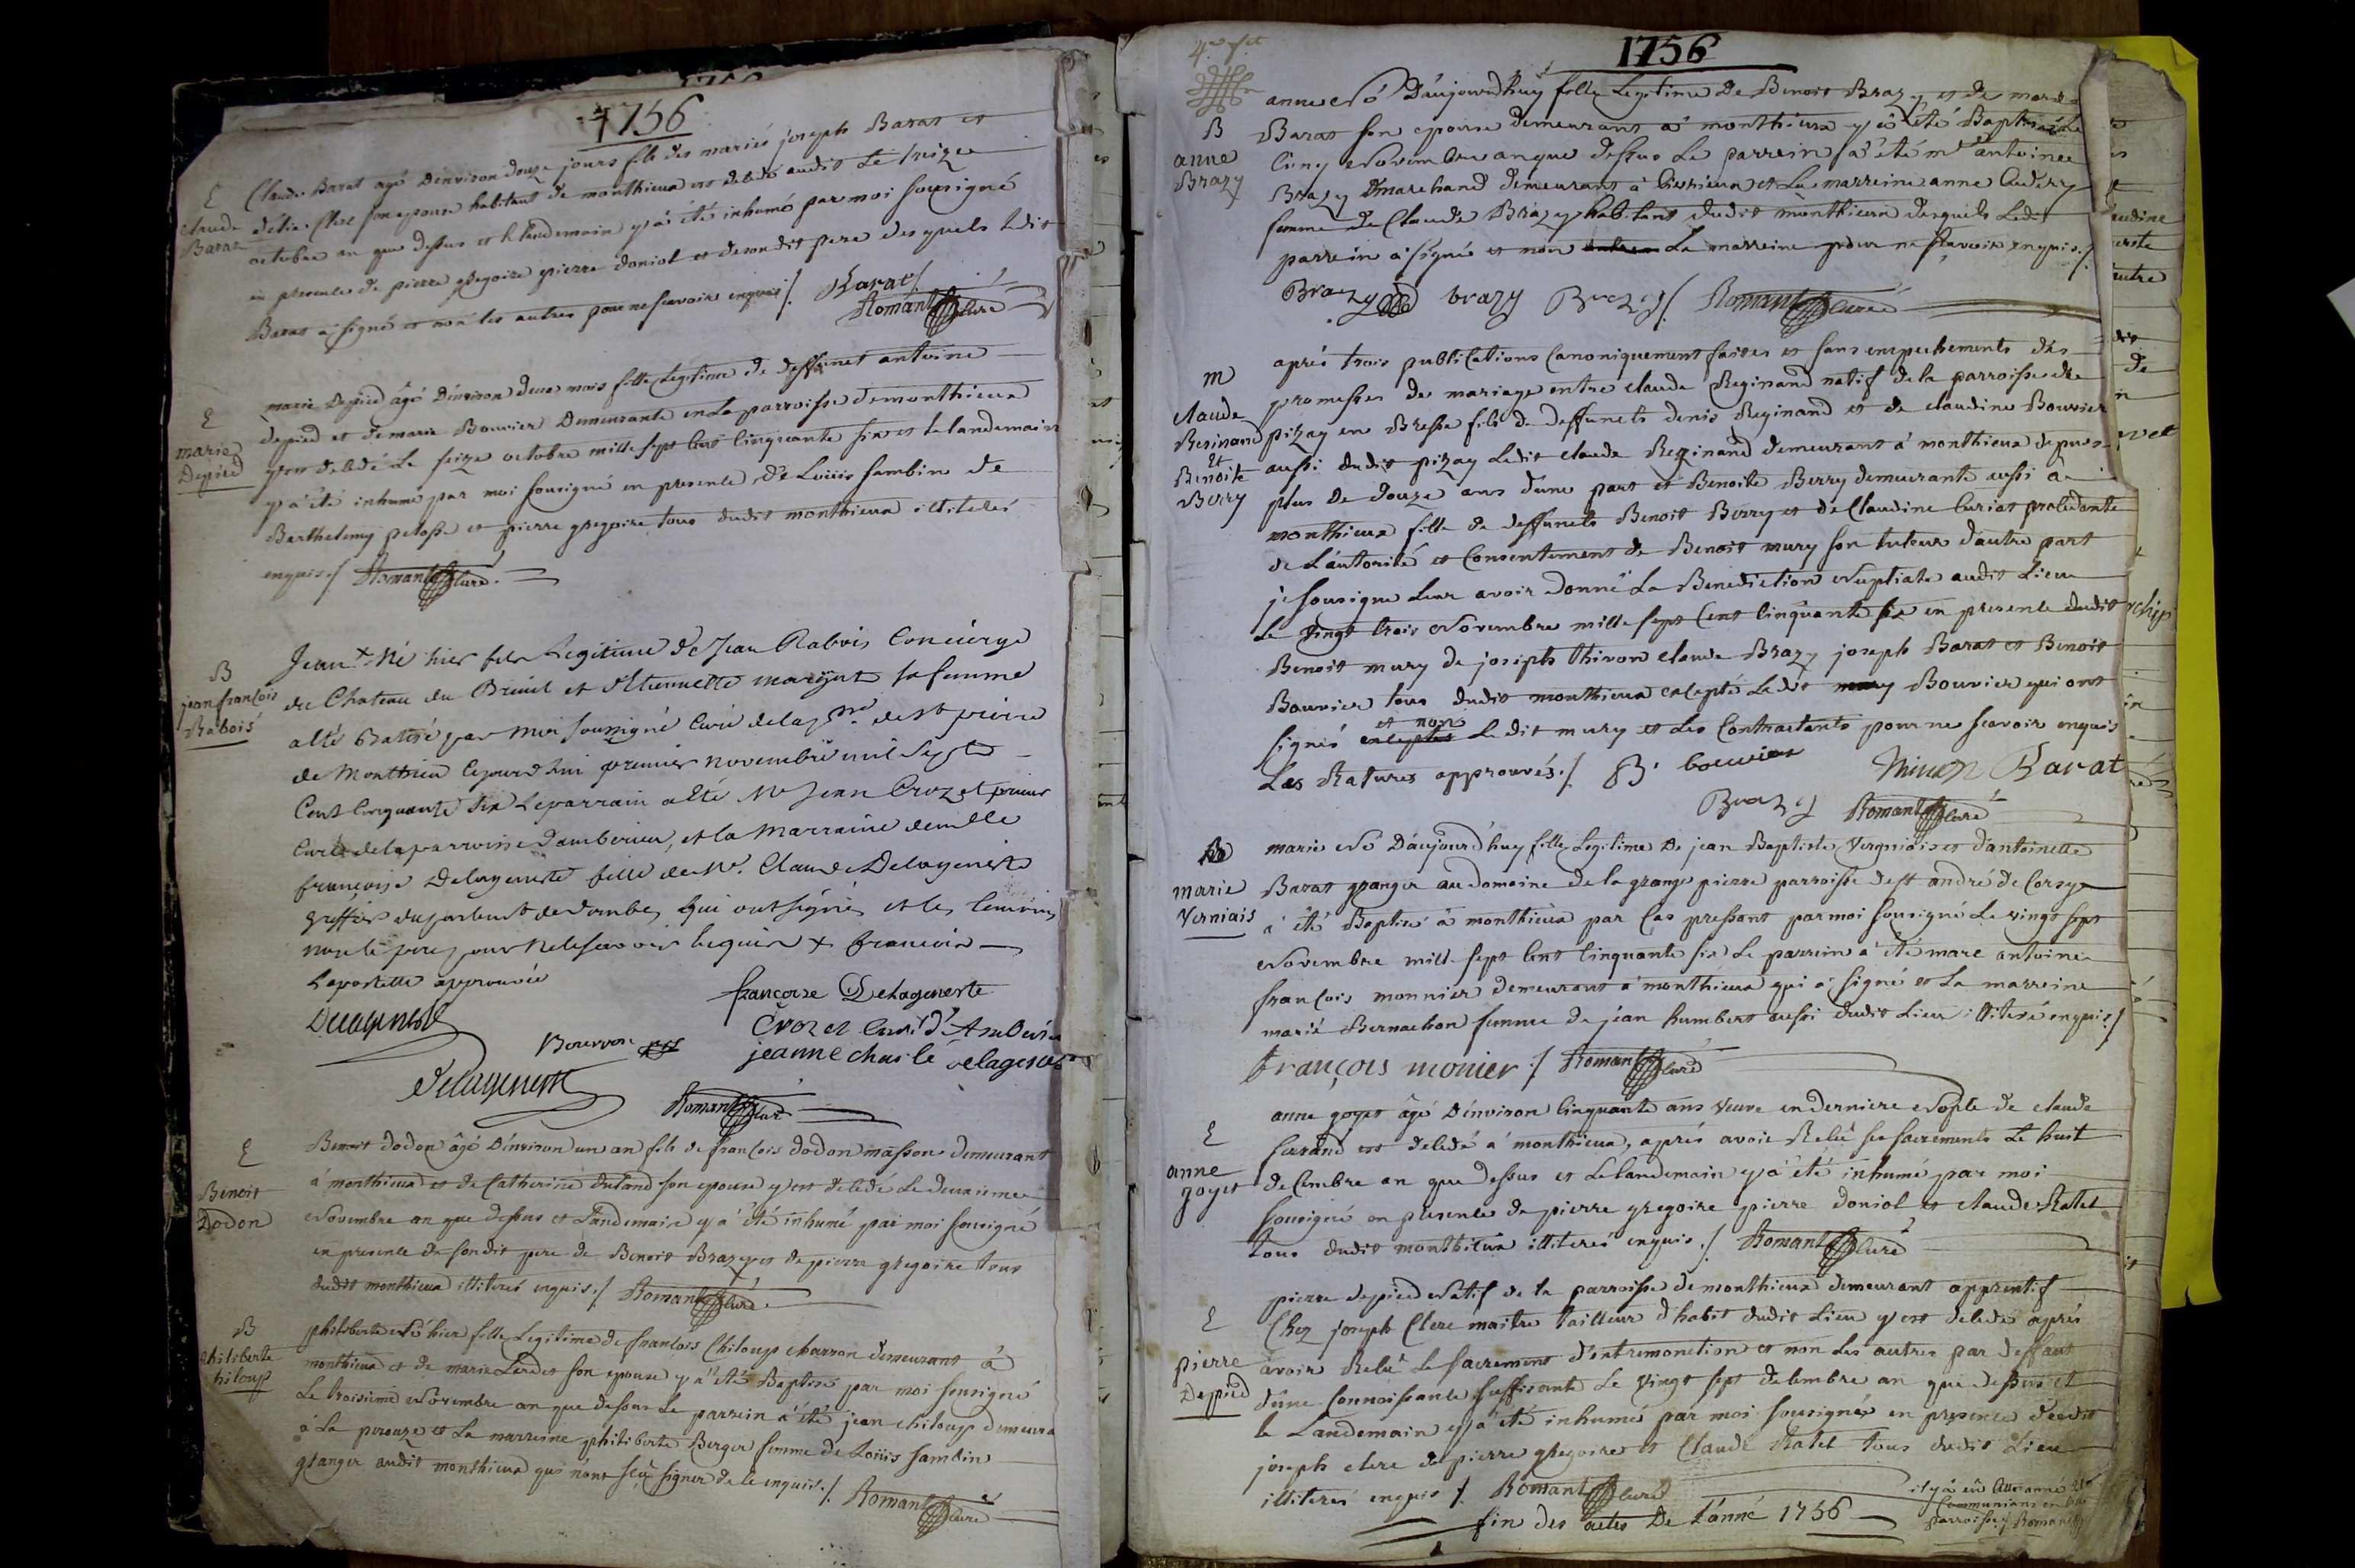 1756
E
Claude
Barat
Claude Barat agé d'environ douze jours fils des mariés joseph Barat et
Clerc son epouse habitant de monthieux est dêcedé audit Le treize
octobre an que dessus et le landemain y a êté inhumé par moi sousigné
en presence de pierre gregoire pierre doniol et de son dit pere desquels ledit
Barat a signé et non les autres pour ne scavoir enquis ./. Barat /.
Romant Curé
E
marie
Depied
marie Depied âgé d'environ deux mois fille Legitime de deffunct antoine
depied et de marie Bouvier Demeurante en La parroisse de monthieux
y est décedé Le seize octobre mille sept cent cinquante six et le landemain
y a êté inhumé par moi sousigné en presence de Loüis sambin de
Barthelemy pelosse et pierre gregoire tous dudit monthieux illiterés
enquis ./ Romant Curé
B
jean françois
Rabois
Jean + Né hier fils Legitime de Jean Rabois Concierge
du Chateau du Breuil et d'Etiennette sa femme
a été Batisé par moi soussigné Curé de la psse de st pierre
de Monthieu cejourdhui premier novembre mil sept
Cent Cinquante six Le parrain a été Mr Jean Crozet prieur
Curé de la parroisse d'amberieu, et la Marraine demlle
françoise Delageneste fille de Mr. Claude Delageneste
greffier du parlement de Dombes, qui ont signés et les temoins
non le pere pour ne le scavoir enquis + francois
Lapostille approuvée
françoise Delageneste
Delageneste
Crozet Curé d'Amberieu
Bourron
jeanne delageneste
Delageneste
Romant Curé
E
Benoit
Dodon
Benoit dodon âgé d'environ un an fils de françois dodon masson demeurant
à monthieux et de Catherine durand son epouse y est décedé Le deuxieme
Novembre an que dessus et Landemain y a êté inhumé par moi sousigné
en presence de son dit pere de Benoit Brazy et de pierre gregoire tous
dudit monthieux illiterés enquis ./ Romant Curé
B
philiberte
hiloup
philiberte Né hier fille Legitime de françois Chiloup charron demeurant à
monthieux et de marie Lardet son epouse y a êté Baptisé par moi sousigné
Le troisieme Novembre an que dessus Le parrein a êté jean chiloup demeura
à La perouze et La marreine philiberte Berger femme de Loüis sambin
granger audit monthieux qui n'ont scu signer de ce enquis ./. Romant Curé
1756
B
anne
Brazy
anne Né D'aujourdhuy fille Legitime De Benoit Brazy et de marie
Barat son epouse demeurant à monthieux y a êté Baptisé Le
cinq Novembre an que dessus Le parrein a êté mr antoine
Brazy marchand demeurant à et La marreine anne
femme de Claude Brazy habitant dudit monthieux desquels Ledit
parrein a signé et non La marreine pour ne scavoir enquis ./.
Brazy brazy Brazy /. Romant Curé
m
claude
Reginand
Et
Benoite
Berry
après trois publications Canoniquement faites et sans empechements des
promesses de mariage entre claude Reginand natif de la parroisse de
pizay en Bresse fils de deffuncts denis Reginand et de claudine Bouvier
aussi dudit pizay Ledit claude Reginand demeurant à monthieux depuis
plus de douze ans d'une part et Benoite Berry demeurante aussi à
monthieux fille de deffuncts Benoit Berry et de Claudine Curiat procedante
de L'autorité et Consentement de Benoit mury son tuteur d'autre part
je sousigne Leur avoir donné La Benediction Nuptiale audit Lieu
Le vingt trois Novembre mille sept Cent Cinquante six en presence dudit
Benoit mury de joseph thivon claude Brazy joseph Barat et Benoit
Bouvier tous dudit monthieux excepté Ledit mury Bouvier qui ont
et non
signés exceptés Le dit mury et Les Contractants pour ne scavoir enquis
Les Ratures approuvés ./. B. bouvier Thivon Barat
Brazy Romant Curé
B
marie
Verniais
marie Né D'aujourd'huy fille Legitime De jean Baptiste Vergniais et d'antoinette
Barat granger au domaine de la grange pierre parroisse de st andré de Corsy
a êté Baptisé à monthieux par Cas pressant par moi sousigné Le vingt sept
Novembre mill sept Cent Cinquante six Le parrein a êté marc antoine
françois monnier demeurant à monthieux qui a signé et La marreine
marie Bernachon femme de jean humbert aussi dudit Lieu illiteré enquis /
françois monier ./ Romant Curé
E
anne
goyet
anne goyet âgé d'environ Cinquante ans veuve en derniere Nopce de claude
est décedé à monthieux, après avoir Reçu ses sacrements Le huit
decembre an que dessus et Le landemain y a êté inhumé par moi
sousigné en presence de pierre gregoire pierre doniol et claude Ratet
tous dudit monthieux illiterés enquis ./ Romant Curé
E
pierre
Depied
pierre depied Natif de la parroisse de monthieux demeurant apprentif
Chez joseph Clerc maitre tailleur d'habit dudit Lieu y est décedé après
avoir Reçu Le sacrement d'extremonction et non Les autres par deffaut
d'une Connoissance suffisante Le vingt sept decembre an que dessus et
le Landemain y a êté inhumé par moi sousigné en presence dudit
joseph clerc de pierre gregoire et Claude Ratet tous dudit Lieu
illiterés enquis /. Romant Curé
fin des actes De L'anné 1756
il y a eü Cette anné
Communians en
parroisse ./ Romant